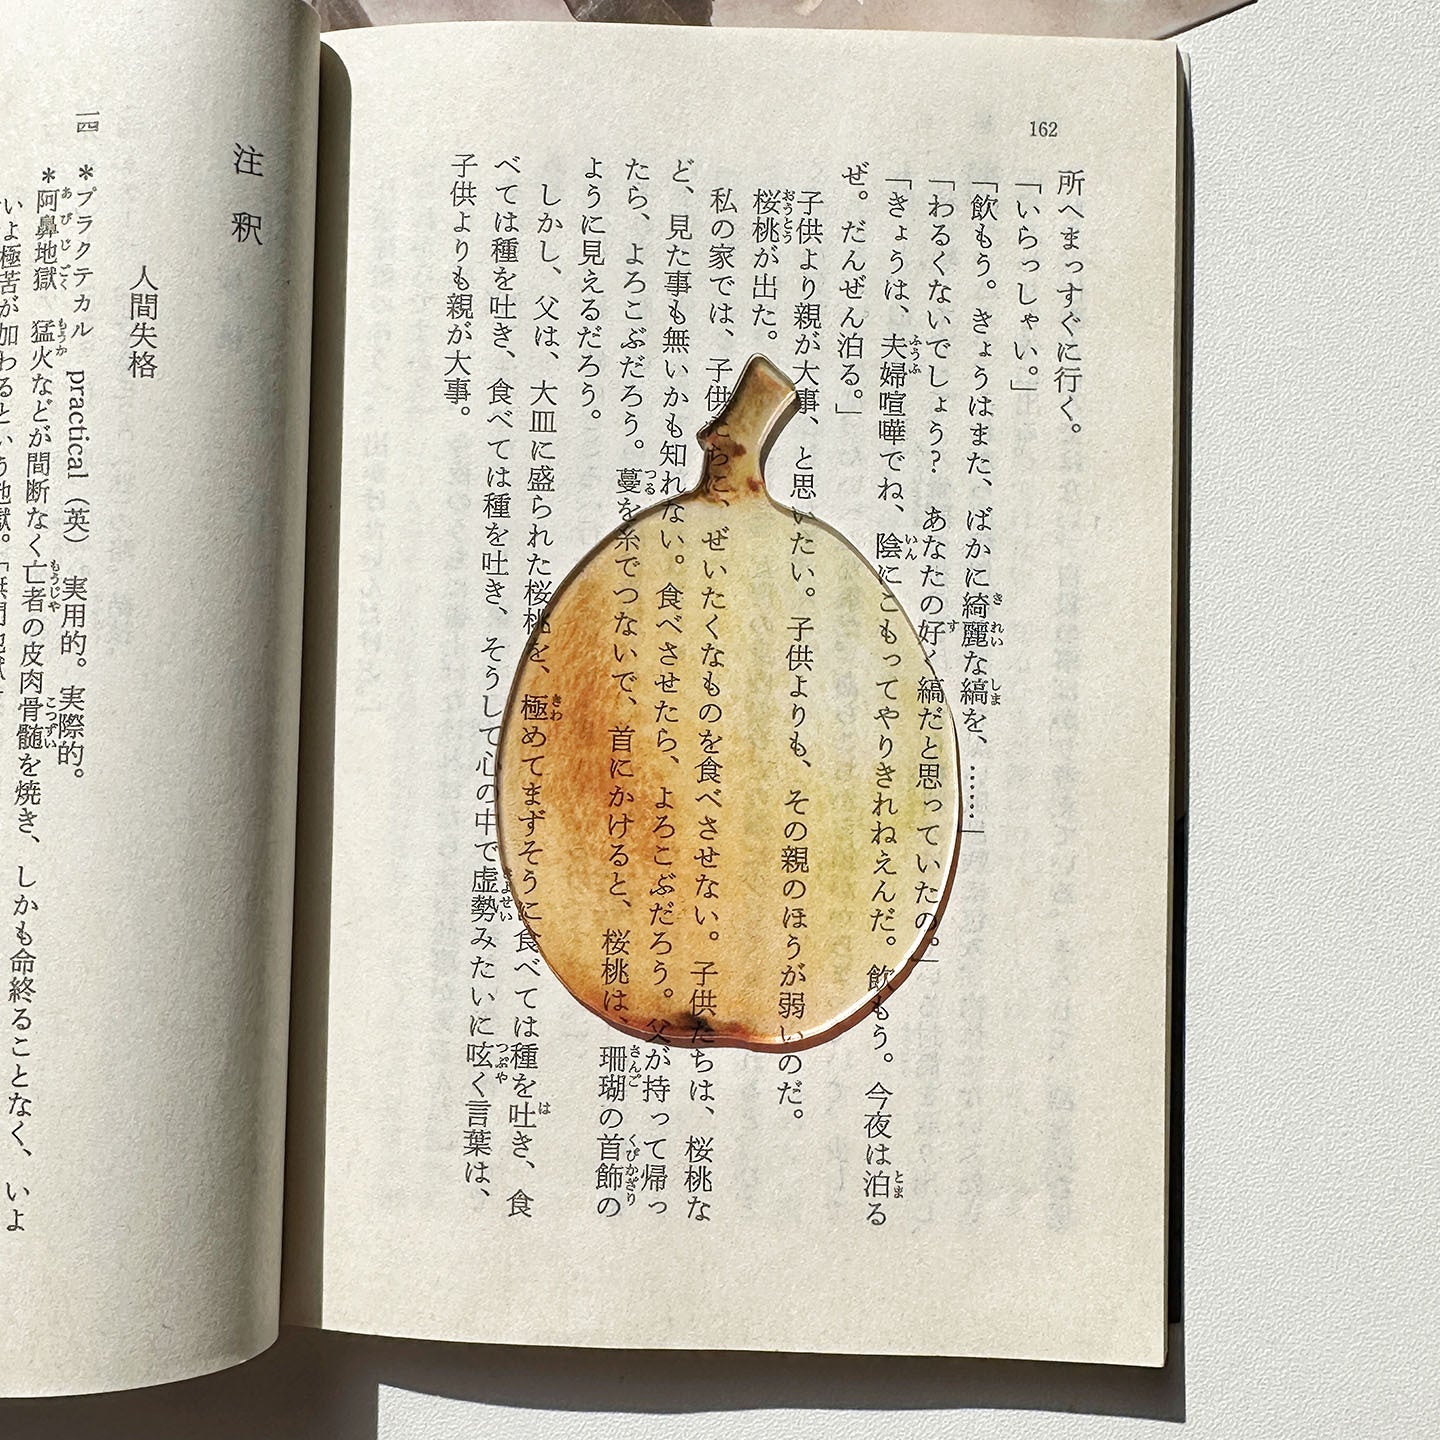 162
所へまっすぐに行く。
「いらっしゃい。」
「飲もう。きょうはまた、ばかに綺麗な縞を、……」
「わるくないでしょう？　あなたの好く縞だと思っていたの。」
「きょうは、夫婦喧嘩でね、陰にこもってやりきれねえんだ。飲もう。今夜は泊る
ぜ。だんぜん泊る。」
子供より親が大事、と思いたい。子供よりも、その親のほうが弱いのだ。
桜桃が出た。
私の家では、子供たちに、ぜいたくなものを食べさせない。子供たちは、桜桃な
ど、見た事も無いかも知れない。食べさせたら、よろこぶだろう。父が持って帰っ
たら、よろこぶだろう。蔓を糸でつないで、首にかけると、桜桃は、珊瑚の首飾の
ように見えるだろう。
しかし、父は、大皿に盛られた桜桃を、極めてまずそうに食べては種を吐き、食
べては種を吐き、食べては種を吐き、そうして心の中で虚勢みたいに呟く言葉は、
子供よりも親が大事。
注釈
人間失格
一四　＊プラクテカル　practical（英）　実用的。実際的。
＊阿鼻地獄　猛火などが間断なく亡者の皮肉骨髄を焼き、しかも命終ることなく、いよ
いよ極苦が加わるという地獄。